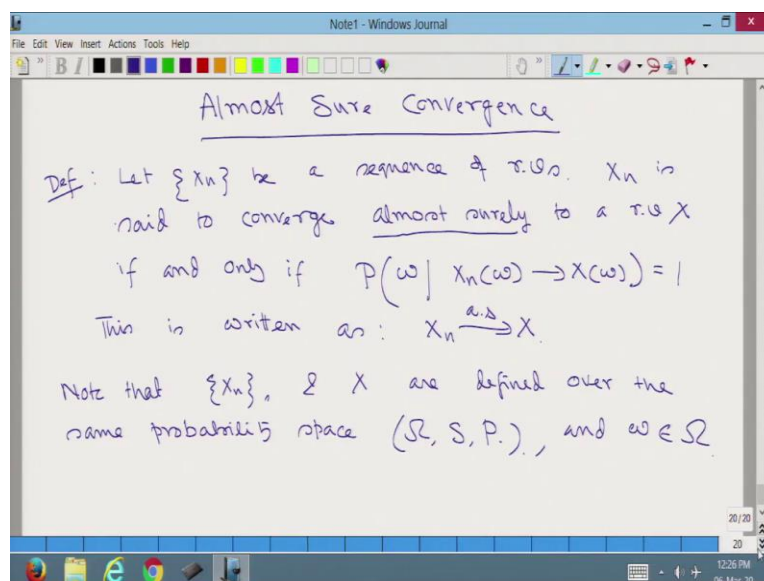 Note1 - Windows Journal
File Edit View Insert Actions Tools Help
B I
Almost Sure Convergence
Def: Let {Xn} be a sequence of r.vs. Xn is
said to converge almost surely to a r.v X
if and only if P(ω | Xn(ω) → X(ω)) = 1
This is written as: Xn a.s→ X
Note that {Xn}, & X are defined over the
same probability space (Ω, S, P.), and ω ∈ Ω
20/20
20
12:26 PM